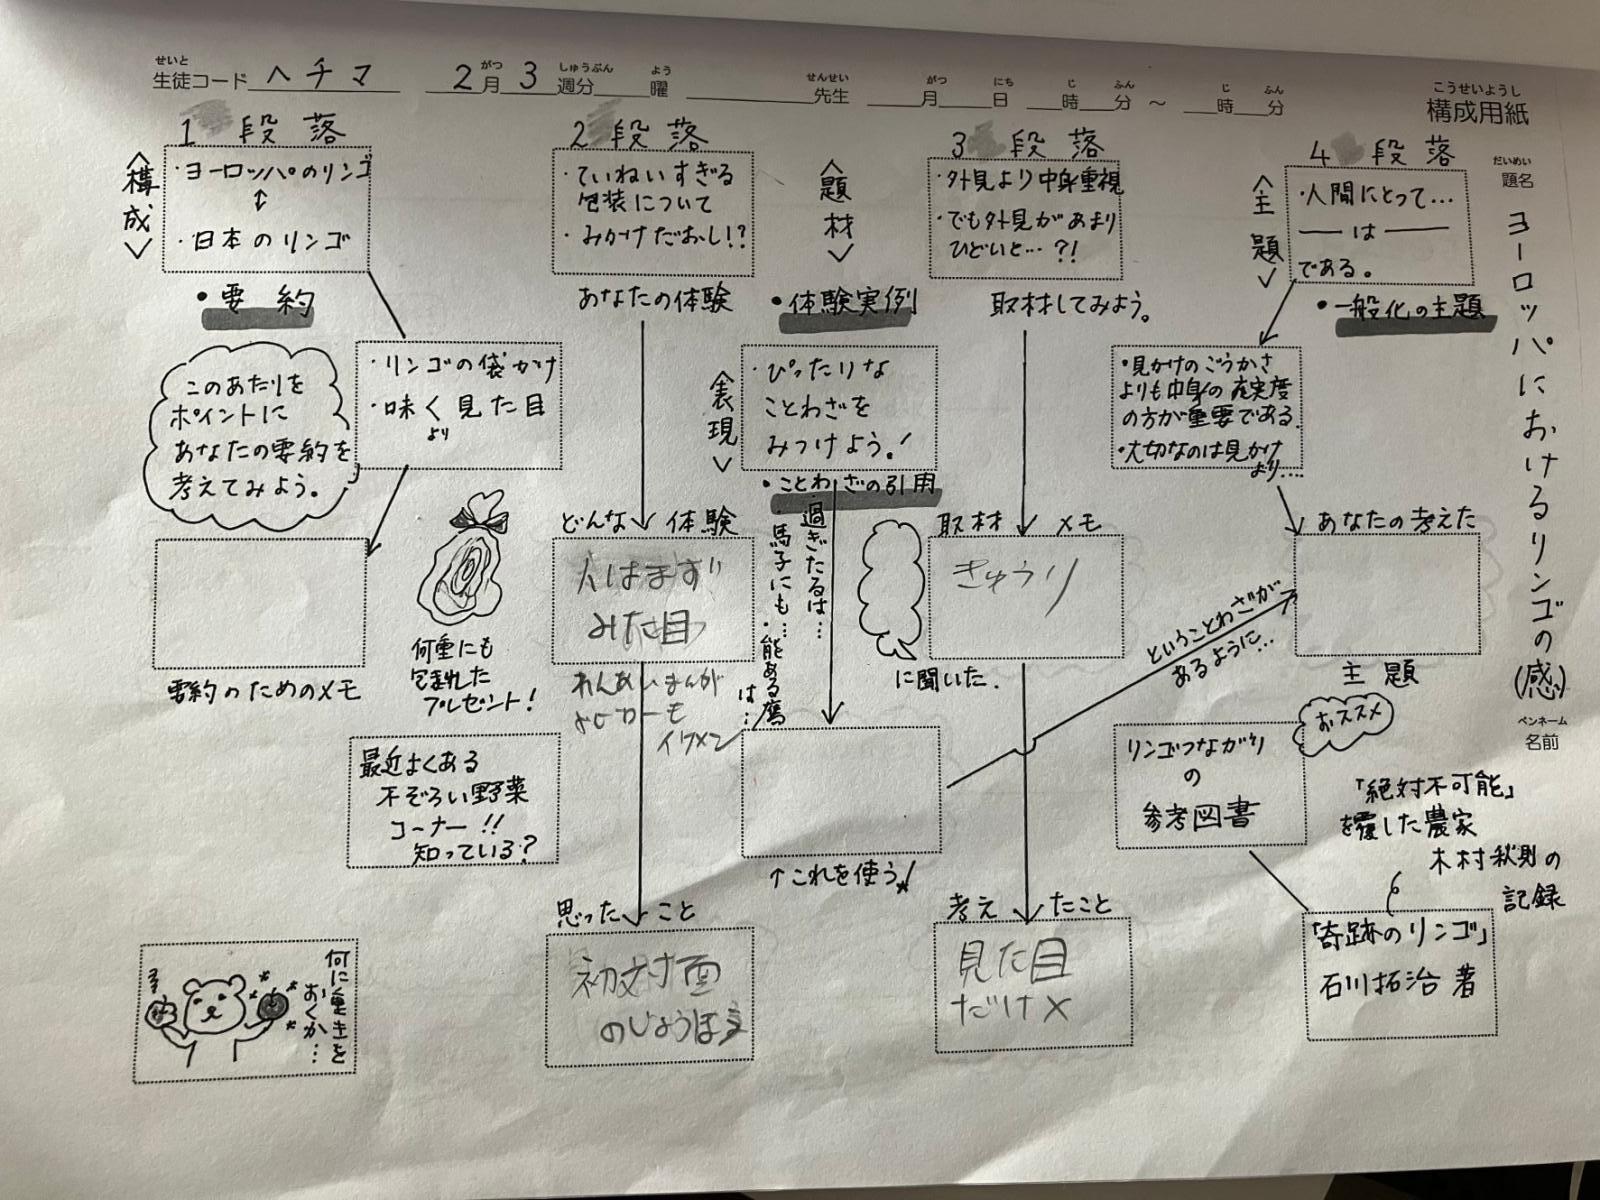 せいと
生徒コード ヘチマ
がつ
2月
しゅうぶん
3週分
よう
曜
せんせい
先生
がつ にち じ ふん じ ふん
月 日 時 分 ～ 時 分
こうせいようし
構成用紙
だいめい
題名
ヨーロッパにおけるリンゴの(感)
ペンネーム
名前
1 段落
〈構成〉
・ヨーロッパのリンゴ
↕
・日本のリンゴ
・要約
このあたりを
ポイントに
あなたの要約を
考えてみよう。
・リンゴの袋かけ
・味く見た目
より
要約のためのメモ
何重にも
包まれた
プレゼント!
最近よくある
不ぞろい野菜
コーナー!!
知っている?
何に重きを
おくか…
2 段落
・ていねいすぎる
包装について
・みかけだおし!?
あなたの体験
どんな体験
人はまず
みた目
れんあいまんが
イケメン
思ったこと
初対面
のじょうほう
〈題材〉
・体験実例
〈表現〉
・ぴったりな
ことわざを
みつけよう。!
・ことわざの引用
過ぎたるは…
・馬子にも…
・能ある鷹
は…
↑これを使う!
3 段落
・外見より中身重視
・でも外見があまり
ひどいと…?!
取材してみよう。
取材メモ
きゅうり
に聞いた.
考えたこと
見た目
だけ×
ということわざが
あるように…
4 段落
〈主題〉
・人間にとって…
── は ──
である。
・一般化の主題
・見かけのごうかさ
よりも中身の充実度
の方が重要である.
・大切なのは見かけ
より…
あなたの考えた
主題
おススメ
リンゴつながり
の
参考図書
「絶対不可能」
を覆した農家
木村秋則の
記録
「奇跡のリンゴ」
石川拓治 著